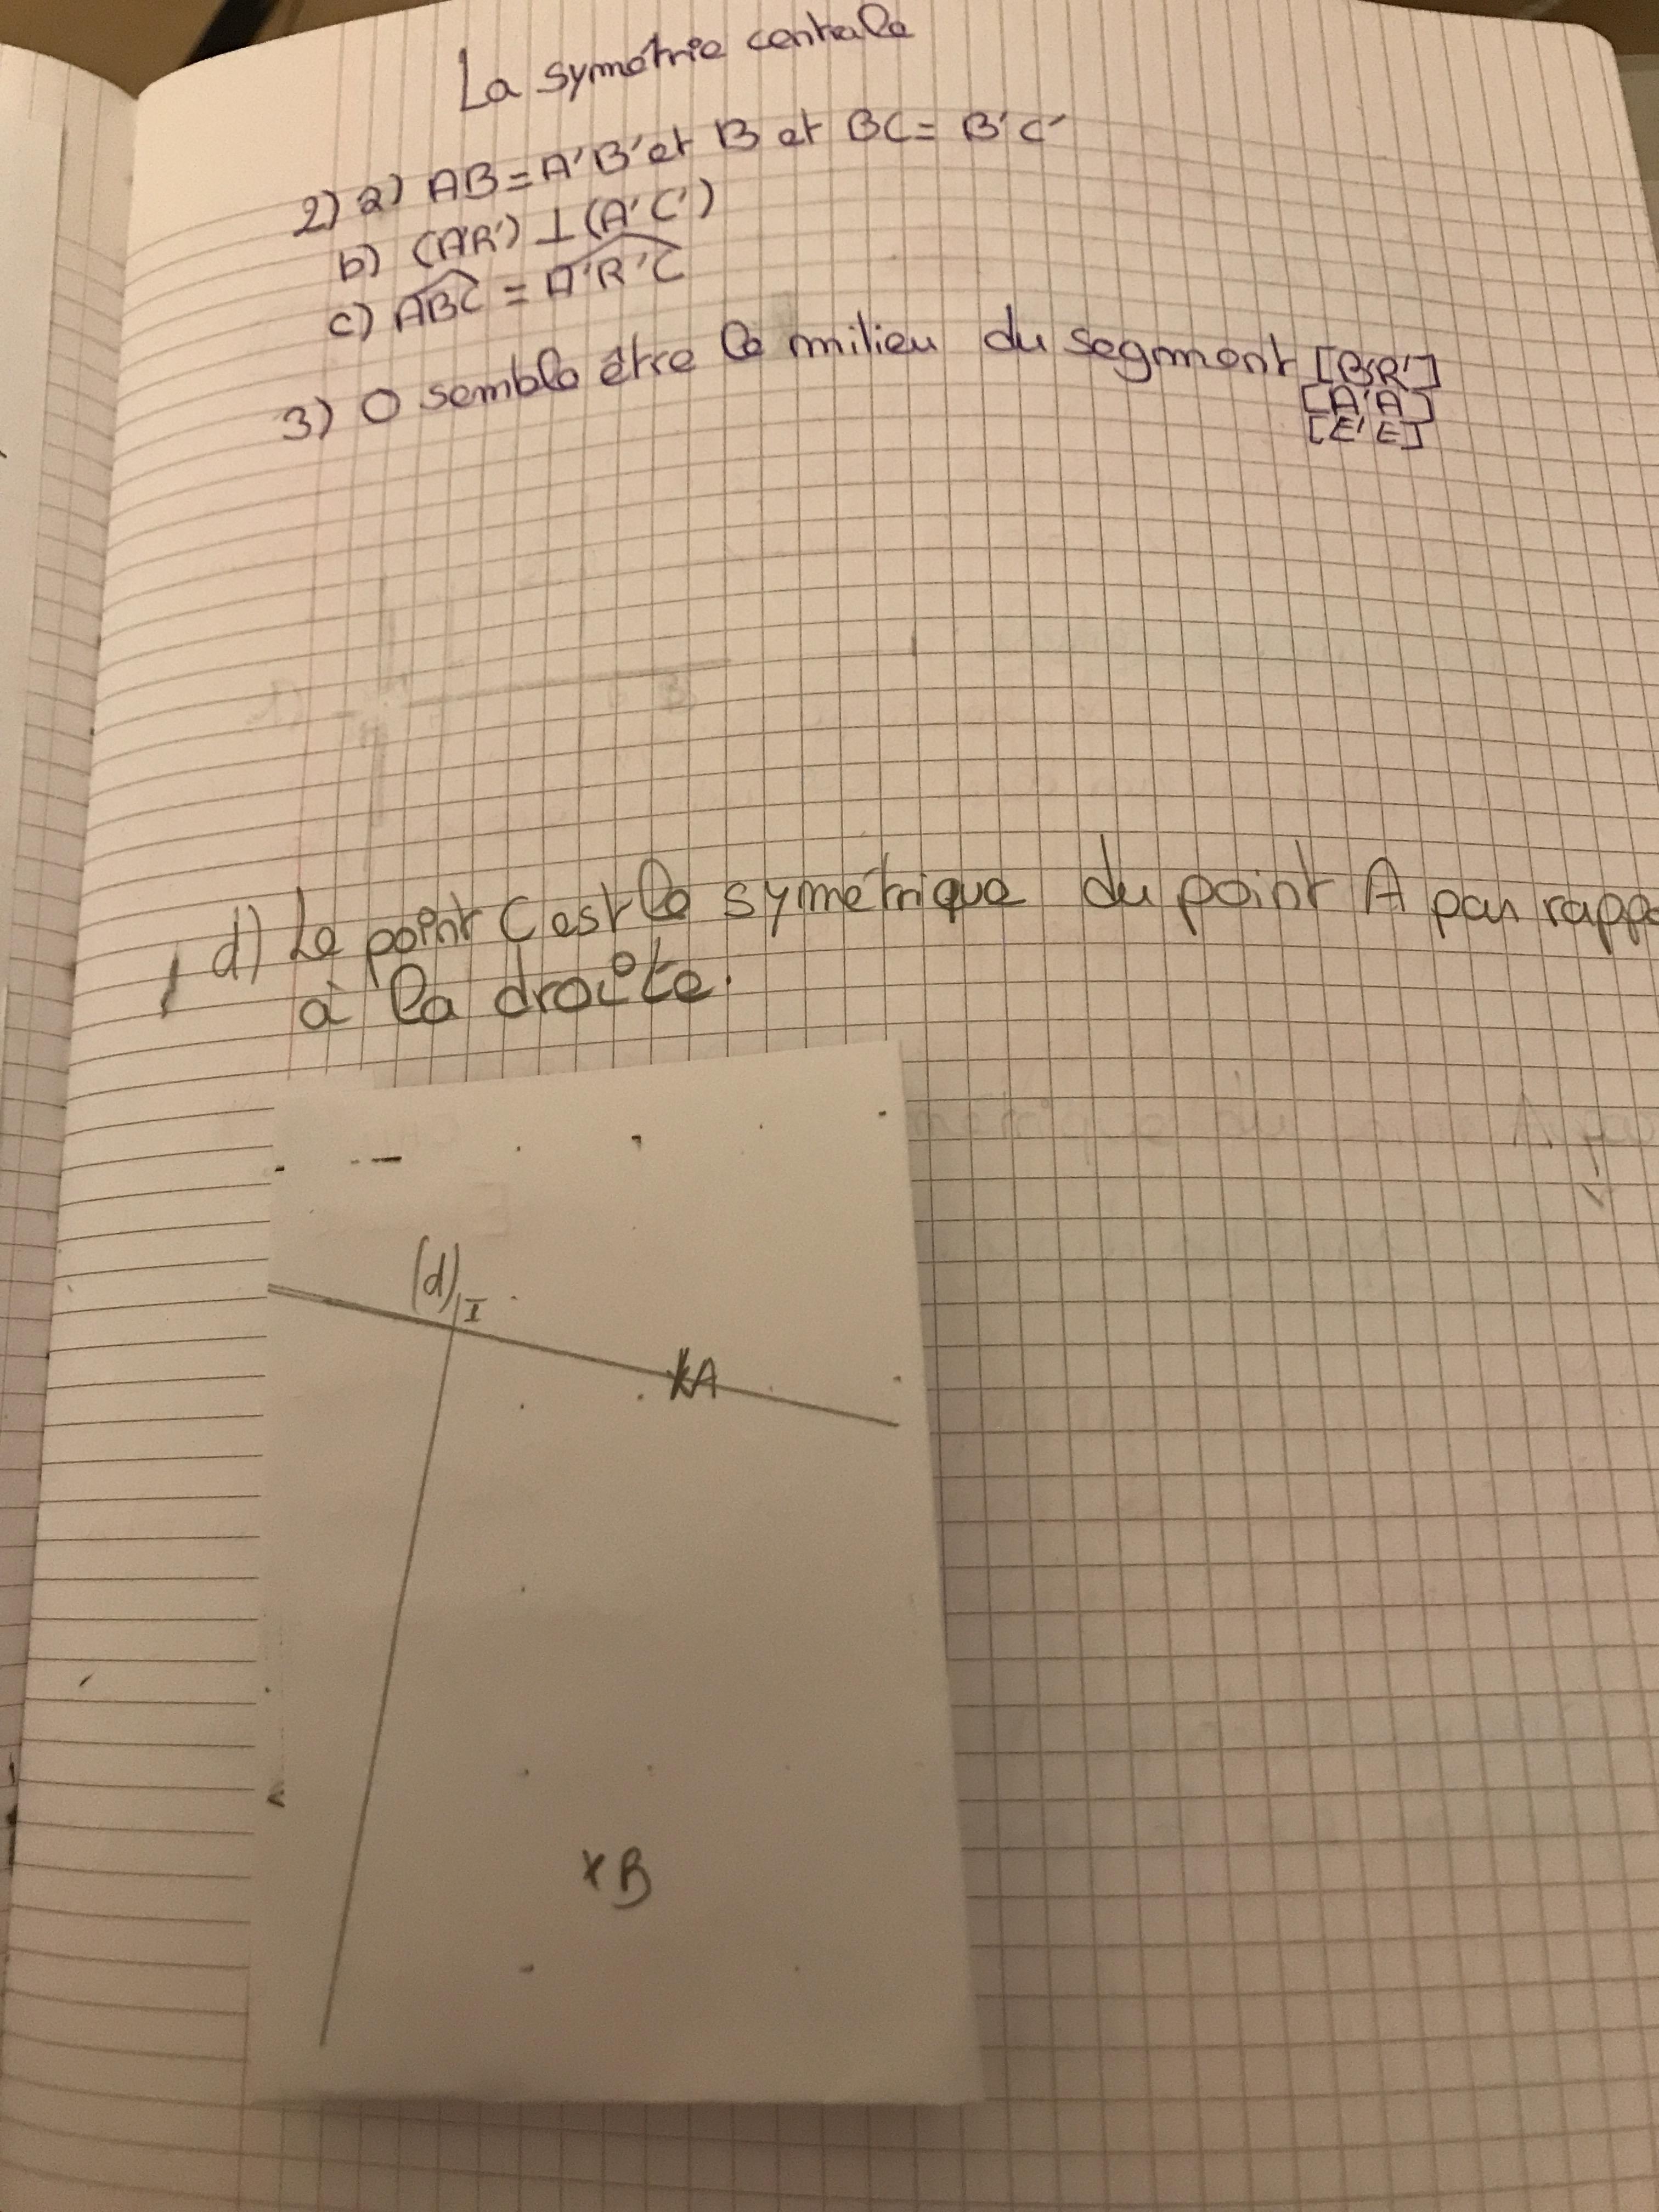 La symétrie centrale
2) a) AB = A'B' et B et BC = B'C'
b) (A'R') ⊥ (A'C')
c) ABC = A'R'C
3) O semble être le milieu du segment [B'R']
[A'A]
[E'E]
d) Le point C est le symétrique du point A par rappo
à la droite.
(d) I
A
B